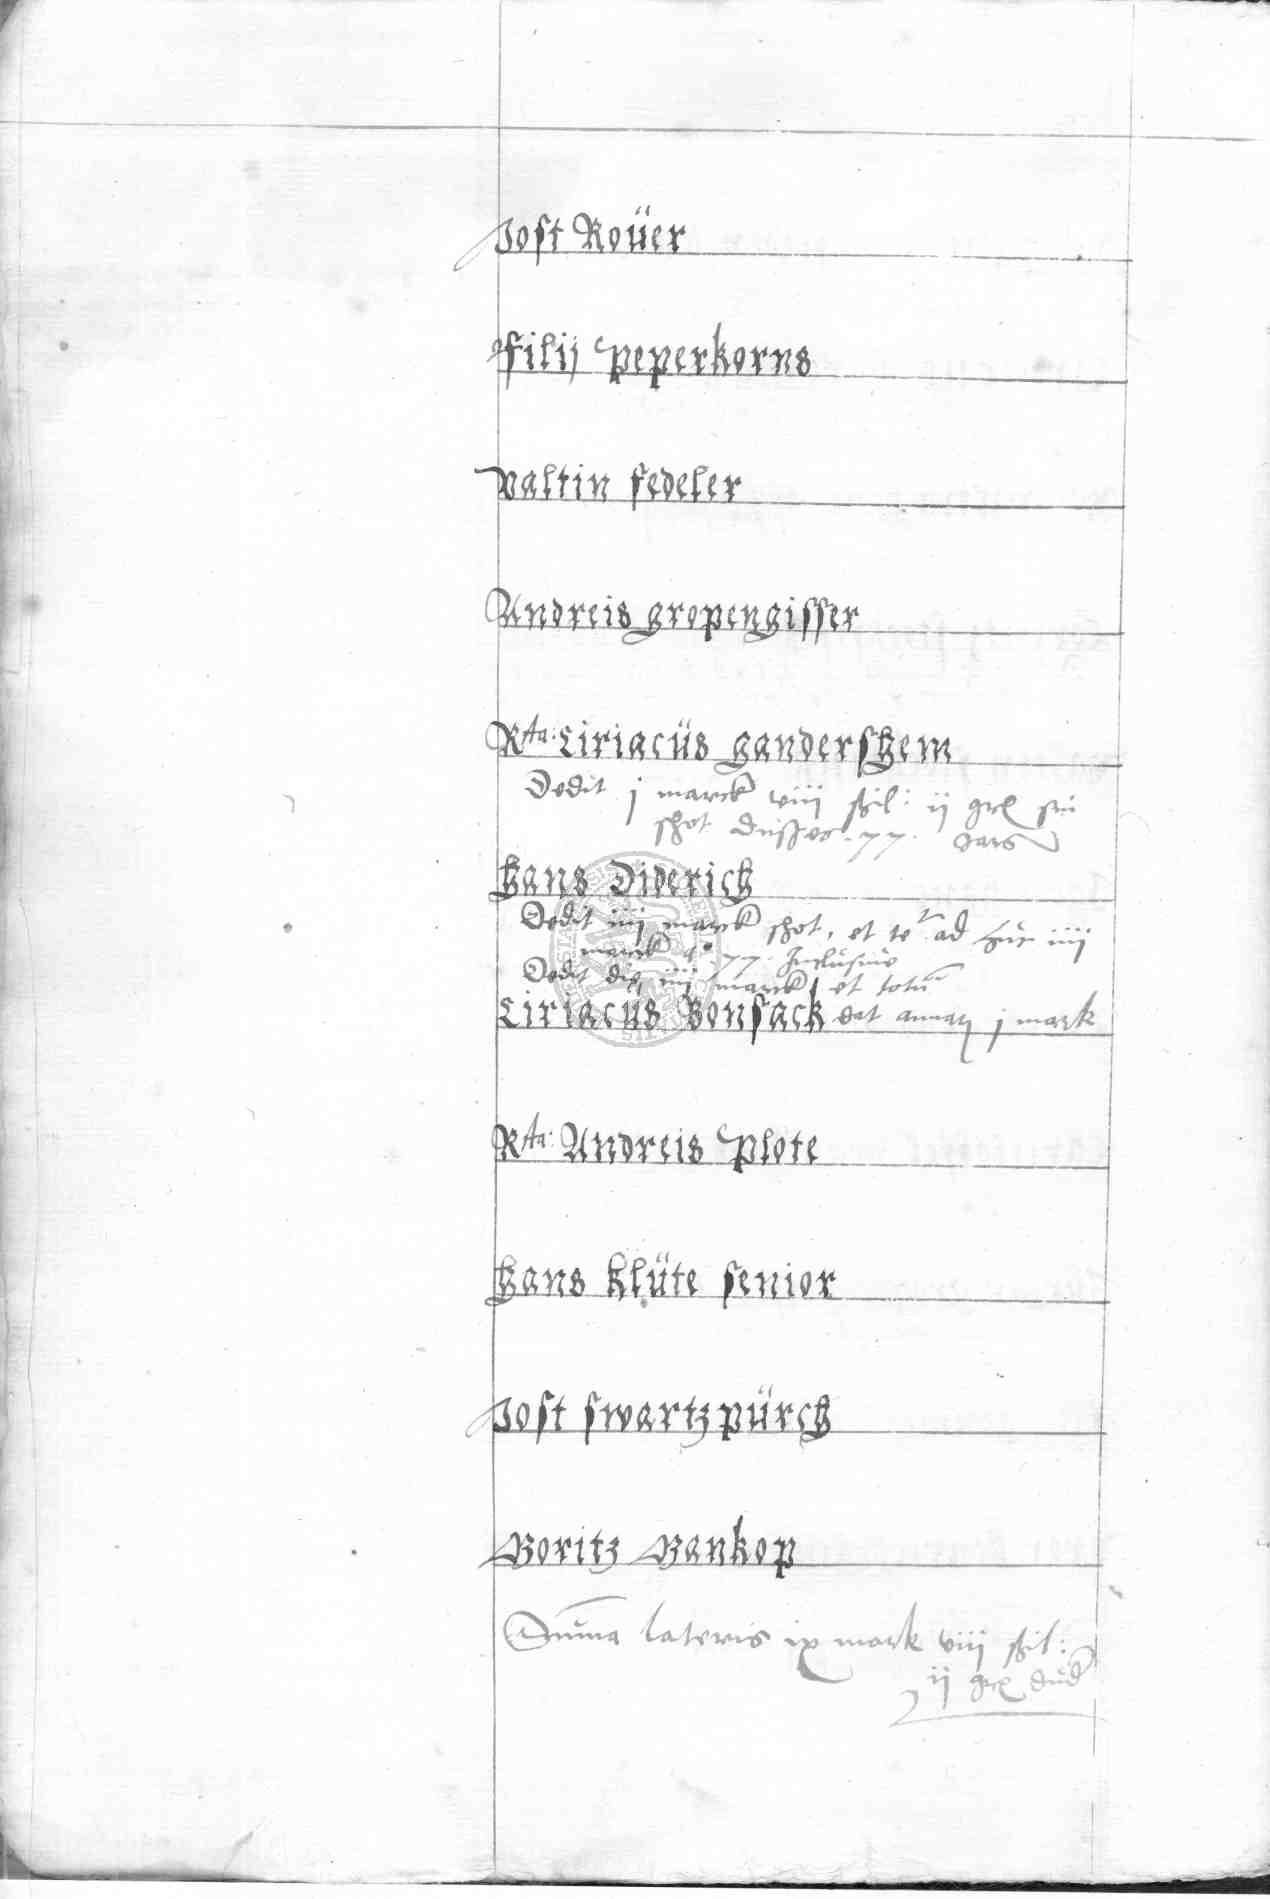 Jost Roüer
filij peperkorns
valtin fedeler
Andreis gropengisser
Rta: Ciriacüs gandershem
Dedit j marck viii ßil: ij grl sin
schot düsses 77 Jars
Hans Diderich
Dedit iiij marck schot, et te ad huc iiij
marck 77 Inclüsiue
Dedit die iiij marck et totū
Ciriacüs Bonsack dat annatz j mark
Rta: Andreis Plote
Hans Klüte senior
Jost swartzpürch
Boritz Bankop
Suma lateris ix mark viii ßil:
ij grl düd